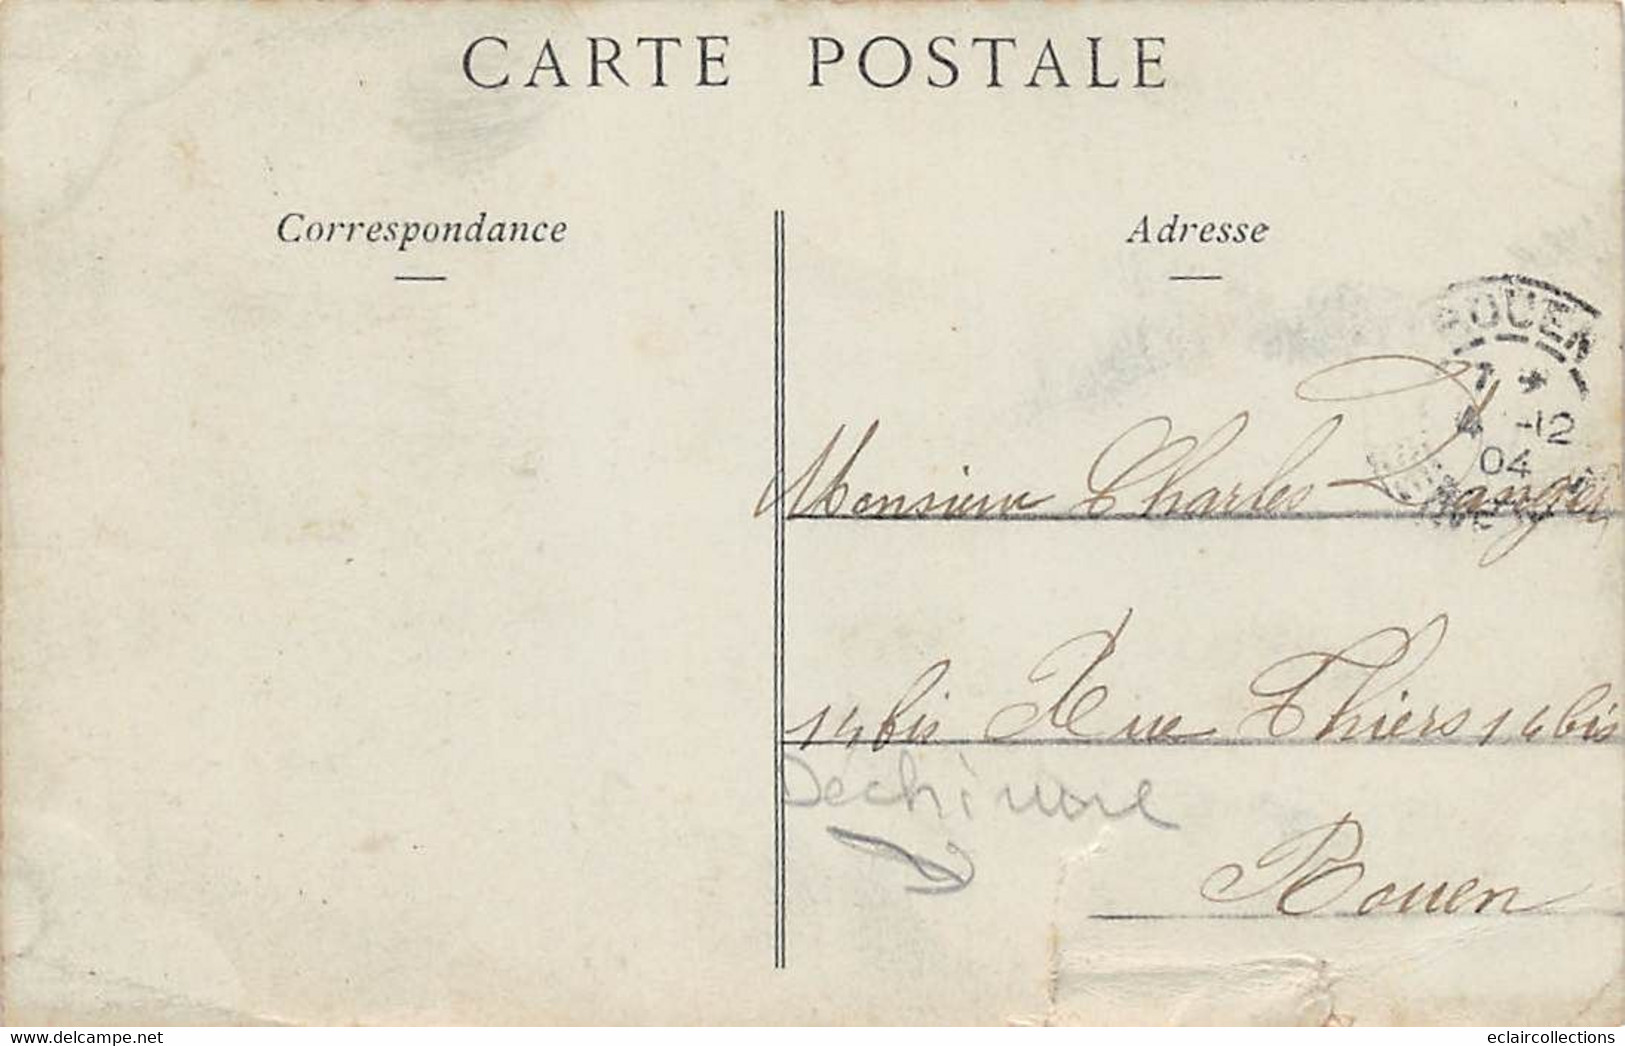 CARTE POSTALE
Correspondance
Adresse
ROUEN
4 -12
04
Monsieur Charles Danger
14 bis Rue Thiers 14 bis
Déchirure
Rouen
www.delcampe.net
eclaircollections